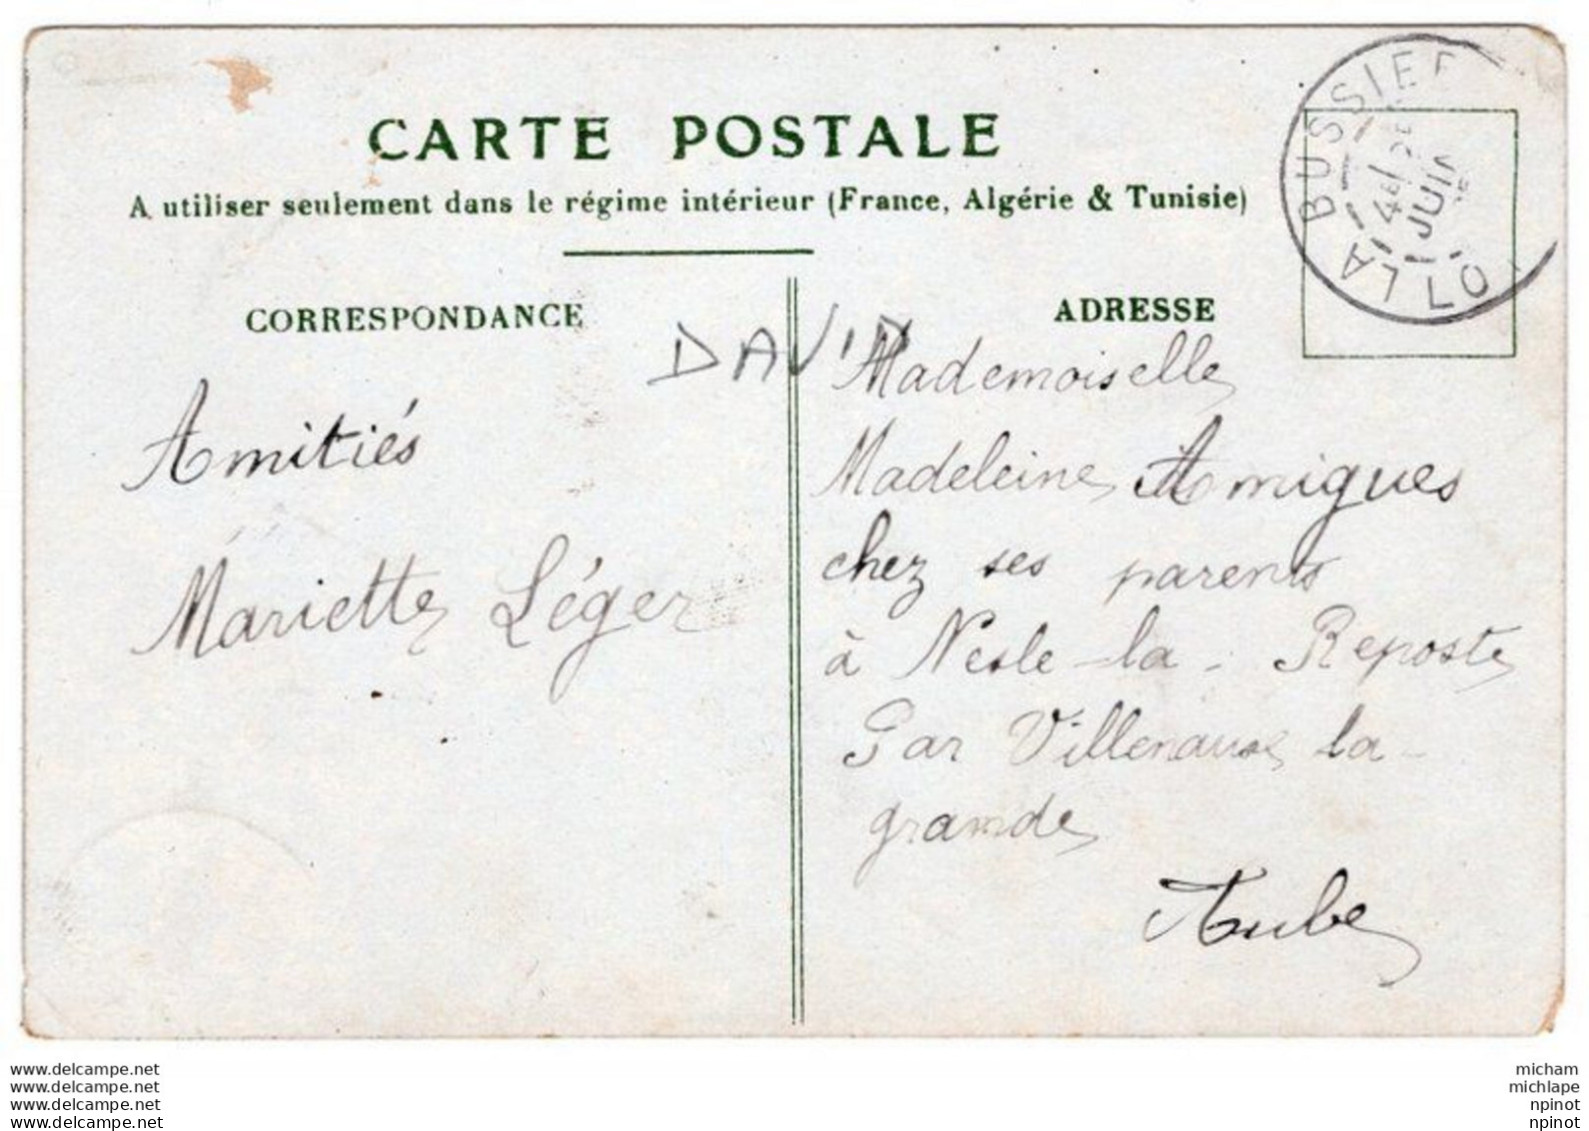 CARTE POSTALE
A utiliser seulement dans le régime intérieur (France, Algérie & Tunisie)
CORRESPONDANCE
Amitiés
Mariette Léger
DAVID
ADRESSE
Mademoiselle
Madeleine Amigues
chez ses parents
à Nesle-la-Reposte
Par Villenauxe la-
grande
Aube
LA BUSSIER
JUIN
LO
www.delcampe.net
www.delcampe.net
www.delcampe.net
www.delcampe.net
micham
michlape
npinot
npinot